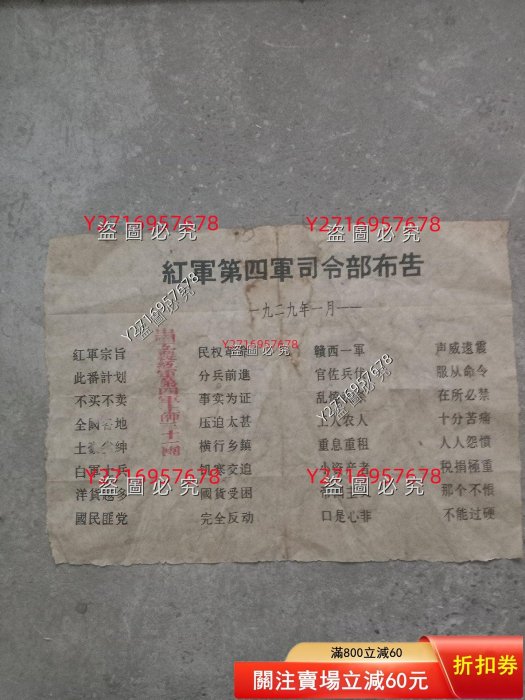 Y2716957678 Y2716957678
盜圖必究 盜圖必究
紅軍第四軍司令部布告
一九二九年一月——
Y2716957678
盜圖必究
Y2716957678 Y2716957678
盜圖必究 盜圖必究
紅軍宗旨 民权 贛西一軍 声威遠震
此番计划 分兵前進 官佐兵 服从命令
不买不卖 事实为证 乱 在所必禁
全國各地 压迫太甚 工人农人 十分苦痛
土豪 绅 横行乡鎮 重息重租 人人怨憤
白軍士兵 寒交迫 小資产者 税捐極重
Y2716957678 Y2716957678
盜圖必究 盜圖必究
洋貨越多 國貨受困 那个不恨
國民匪党 完全反动 口是心非 不能过硬
滿800立減60
關注賣場立減60元
折扣券